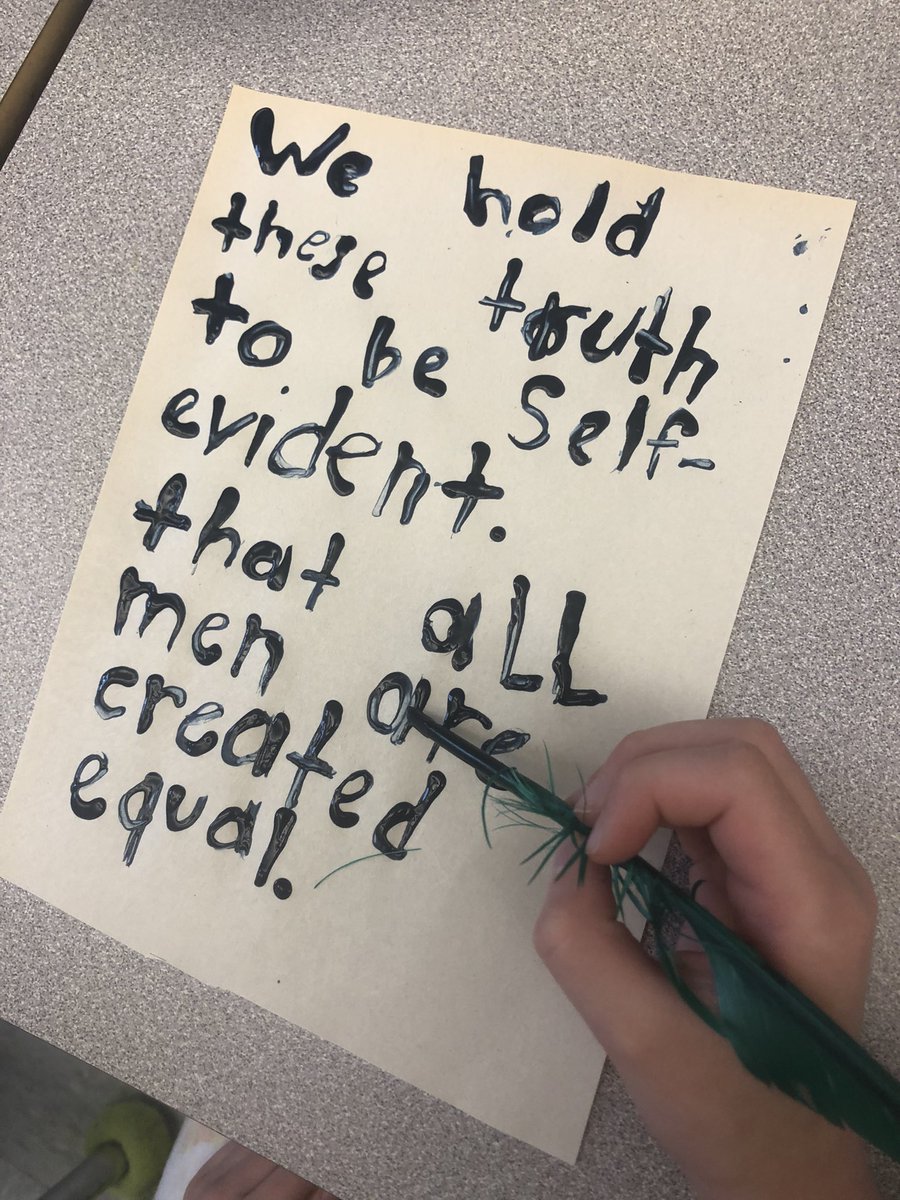 We hold
these truth
to be Self-
evident.
that all
men are
created
equal.